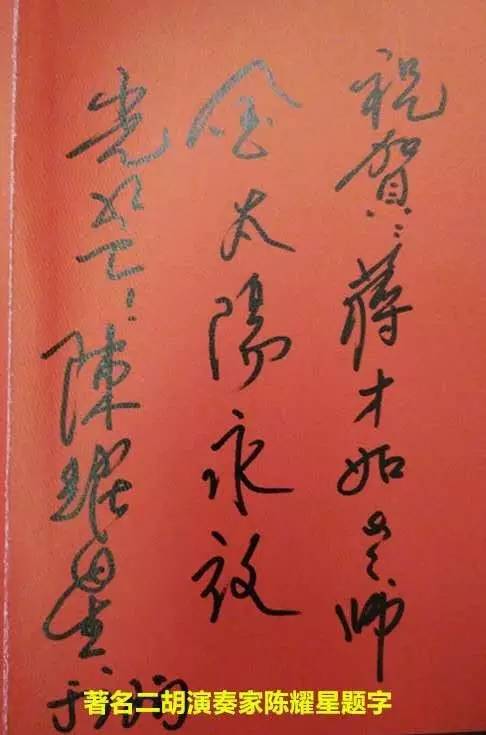 祝賀:蔣才老師
金太陽永放
光芒!陳耀星
于
著名二胡演奏家陈耀星题字